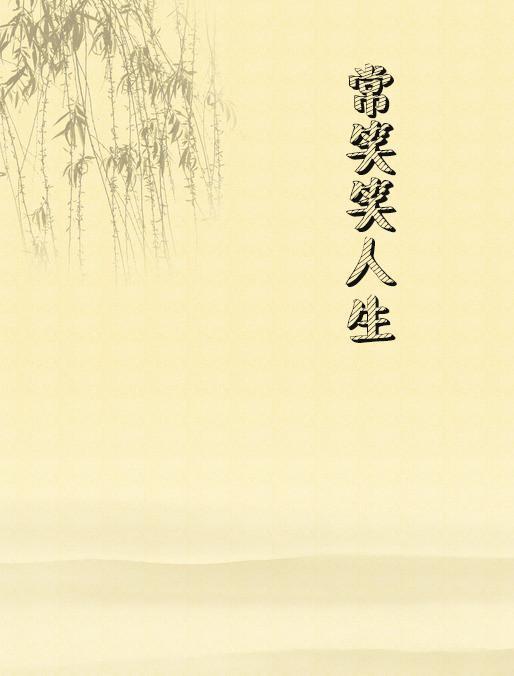 常笑笑人生